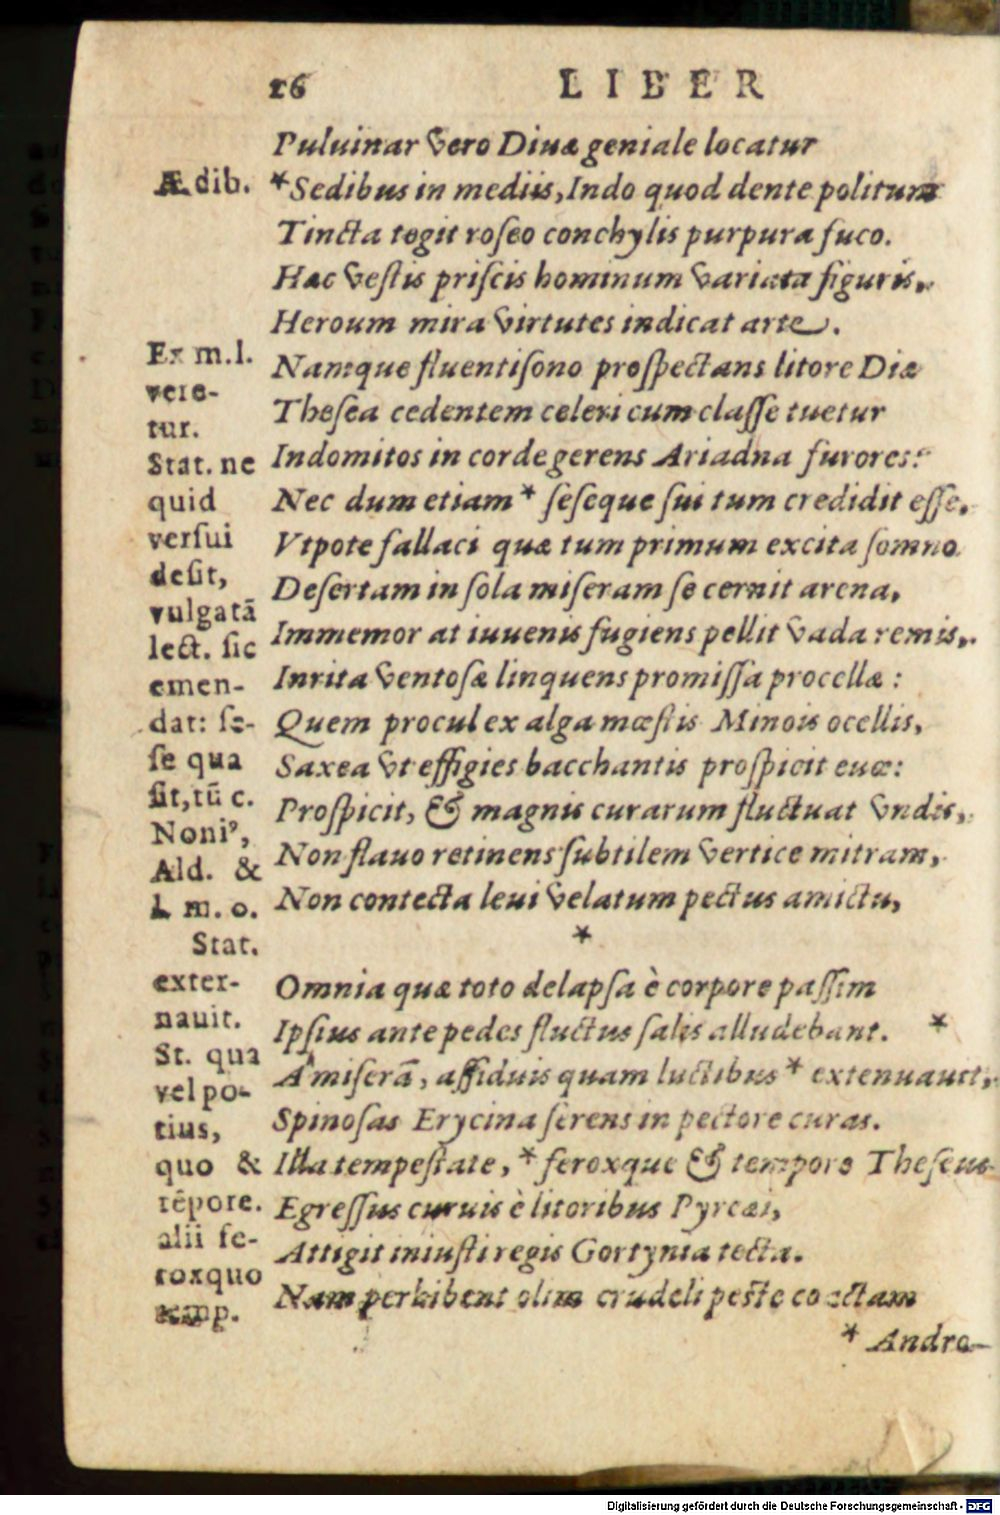 26 LIBER
Puluinar vero Diuæ geniale locatur
Ædib. *Sedibus in mediis, Indo quod dente politum
Tincta tegit roseo conchylis purpura fuco.
Hæc vestis priscis hominum variata figuris,
Heroum mira virtutes indicat arte.
Namque fluentisono prospectans litore Diæ
Thesea cedentem celeri cum classe tuetur
Indomitos in corde gerens Ariadna furores:
Nec dum etiam * seseque sui tum credidit esse,
Vtpote fallaci quæ tum primum excita somno
Desertam in sola miseram se cernit arena,
Immemor at iuuenis fugiens pellit vada remis,
Inrita ventosæ linquens promissa procellæ:
Quem procul ex alga mœstis Minois ocellis,
Saxea vt effigies bacchantis prospicit euœ:
Prospicit, & magnis curarum fluctuat vndis,
Non flauo retinens subtilem vertice mitram,
Non contecta leui velatum pectus amictu,
*
Omnia quæ toto delapsa è corpore passim
Ipsius ante pedes fluctus salis alludebant. *
A miserā, assiduis quam luctibus * extenuauit,
Spinosas Erycina serens in pectore curas.
Illa tempestate, * feroxque & tempore Theseus
Egressus curuis è litoribus Pyræi,
Attigit iniusti regis Gortynia tecta.
Nam perhibent olim crudeli peste coactam
* Andro-
Ex m.l.
vere-
tur.
Stat. ne
quid
versui
desit,
vulgatā
lect. sic
emen-
dat: se-
se qua
sit, tū c.
Noniꝰ,
Ald. &
l. m. o.
Stat.
exter-
nauit.
St. qua
vel po-
tius,
quo &
tēpore.
alii fe-
roxquo
temp.
Digitalisierung gefördert durch die Deutsche Forschungsgemeinschaft - DFG